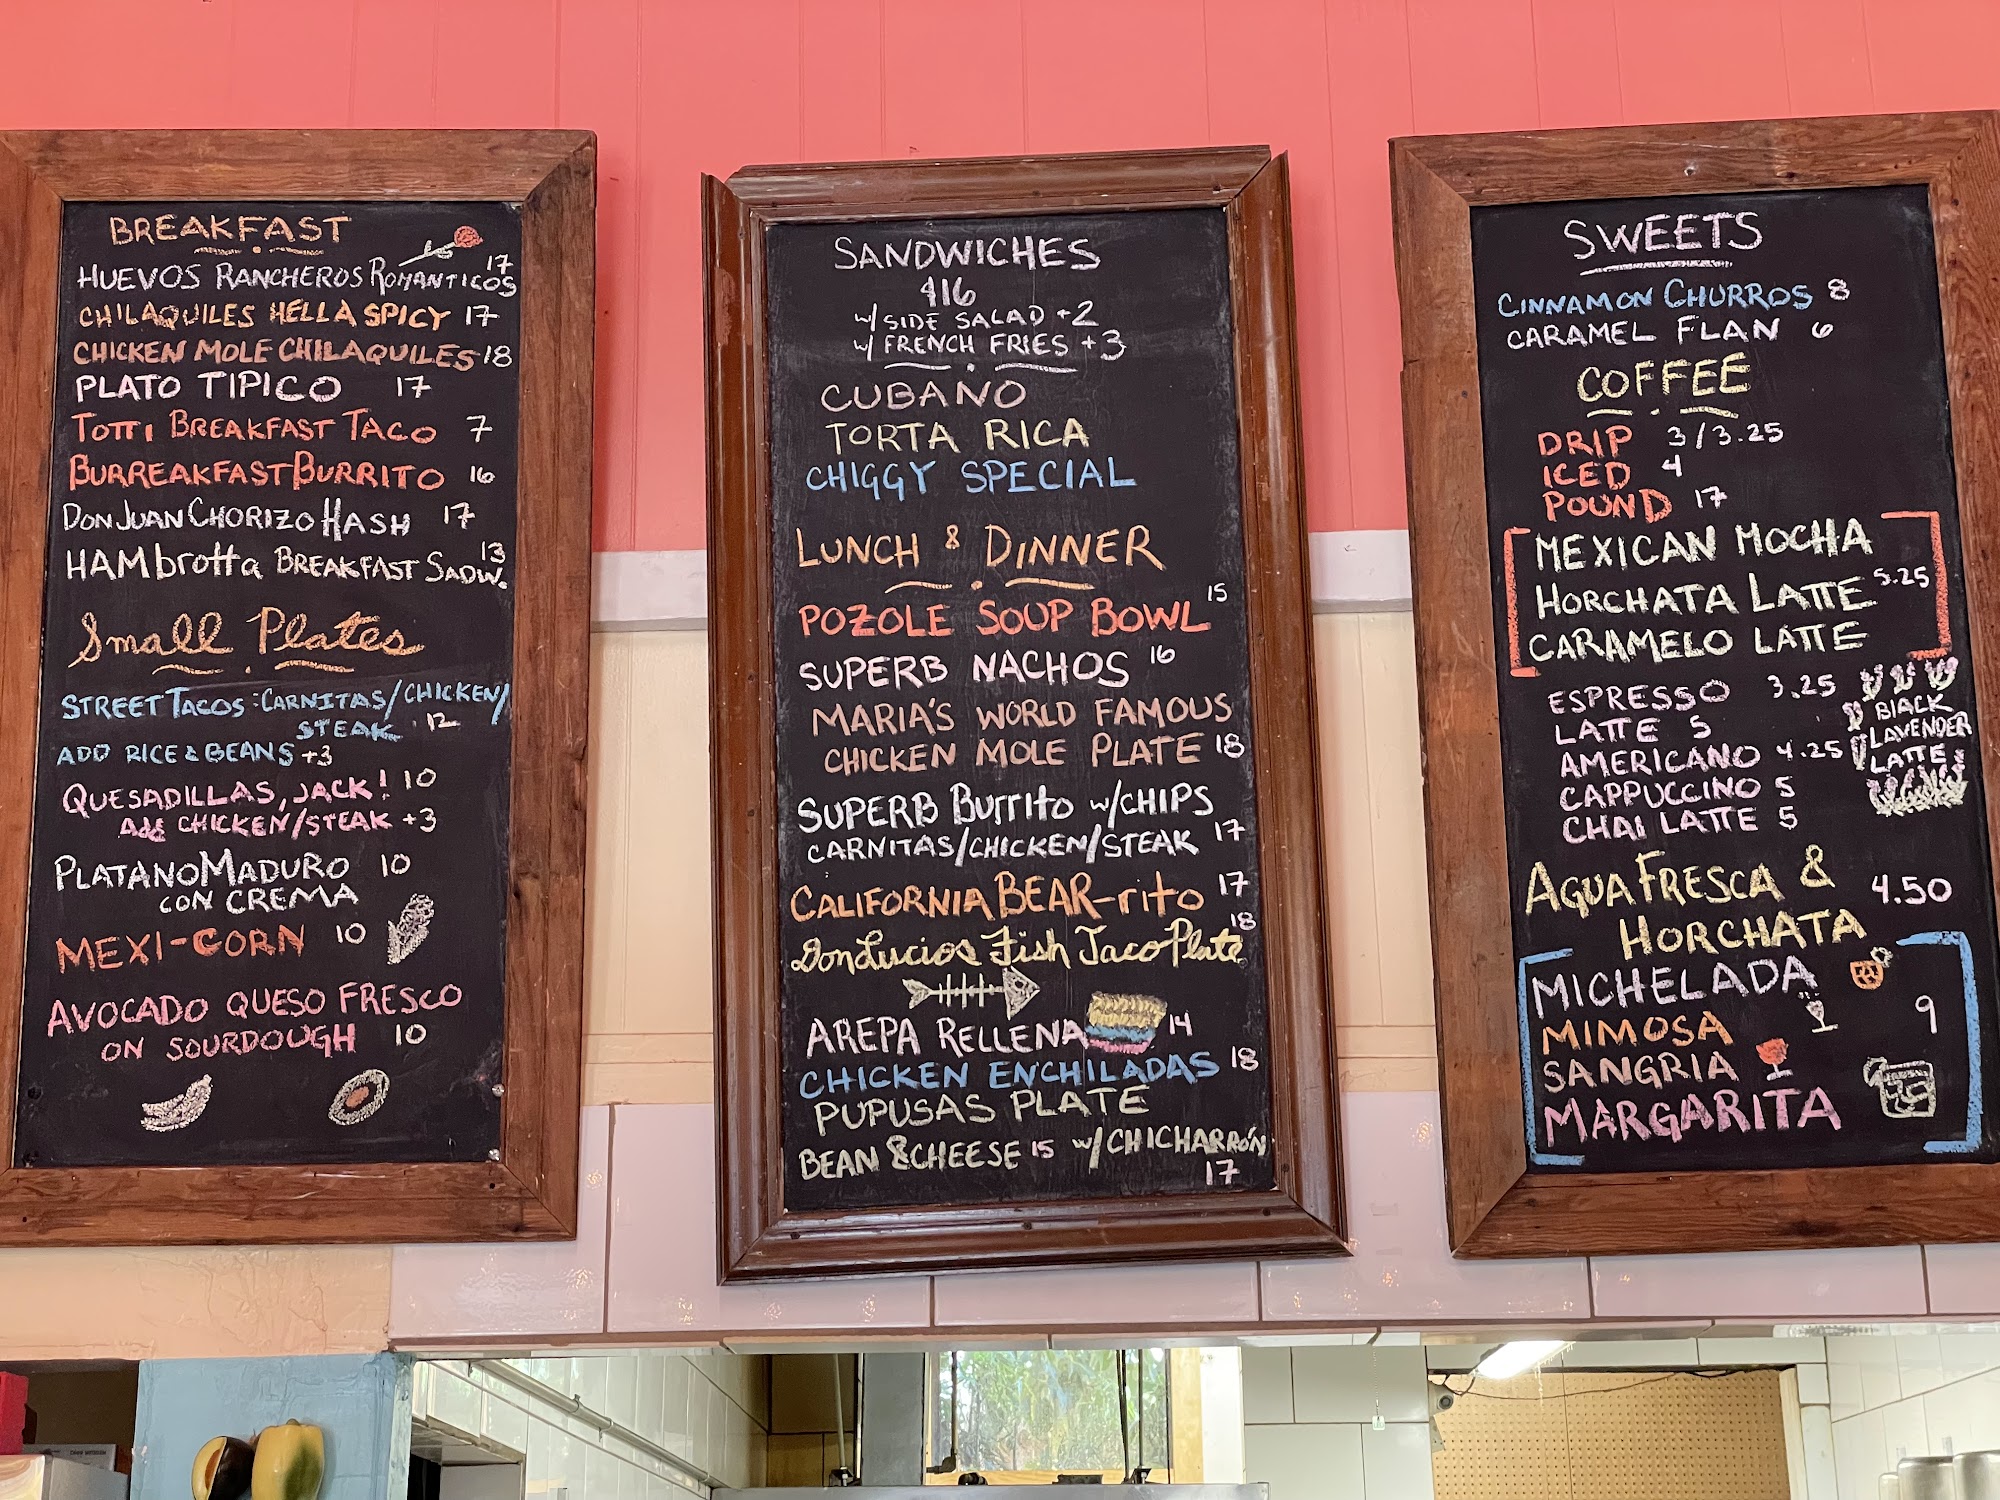 BREAKFAST
HUEVOS RANCHEROS ROMANTICOS 17
CHILAQUILES HELLA SPICY 17
CHICKEN MOLE CHILAQUILES 18
PLATO TIPICO 17
TOTTI BREAKFAST TACO 7
BURREAKFAST BURRITO 16
DON JUAN CHORIZO HASH 17
HAMbrotta BREAKFAST SADW. 13
Small Plates
STREET TACOS: CARNITAS/CHICKEN/
STEAK 12
ADD RICE & BEANS +3
QUESADILLAS, JACK! 10
Add CHICKEN/STEAK +3
PLATANO MADURO 10
CON CREMA
MEXI-CORN 10
AVOCADO QUESO FRESCO
ON SOURDOUGH 10
SANDWICHES
$16
w/ SIDE SALAD +2
w/ FRENCH FRIES +3
CUBANO
TORTA RICA
CHIGGY SPECIAL
LUNCH & DINNER
POZOLE SOUP BOWL 15
SUPERB NACHOS 16
MARIA'S WORLD FAMOUS
CHICKEN MOLE PLATE 18
SUPERB BURRITO w/CHIPS
CARNITAS/CHICKEN/STEAK 17
CALIFORNIA BEAR-rito 17
Don Lucios Fish Taco Plate 18
AREPA RELLENA 14
CHICKEN ENCHILADAS 18
PUPUSAS PLATE
BEAN & CHEESE 15 w/ CHICHARRÓN
17
SWEETS
CINNAMON CHURROS 8
CARAMEL FLAN 6
COFFEE
DRIP 3/3.25
ICED 4
POUND 17
MEXICAN MOCHA
HORCHATA LATTE 5.25
CARAMELO LATTE
ESPRESSO 3.25
LATTE 5
AMERICANO 4.25
CAPPUCCINO 5
CHAI LATTE 5
BLACK
LAVENDER
LATTE
AGUA FRESCA &
HORCHATA 4.50
MICHELADA
MIMOSA 9
SANGRIA
MARGARITA